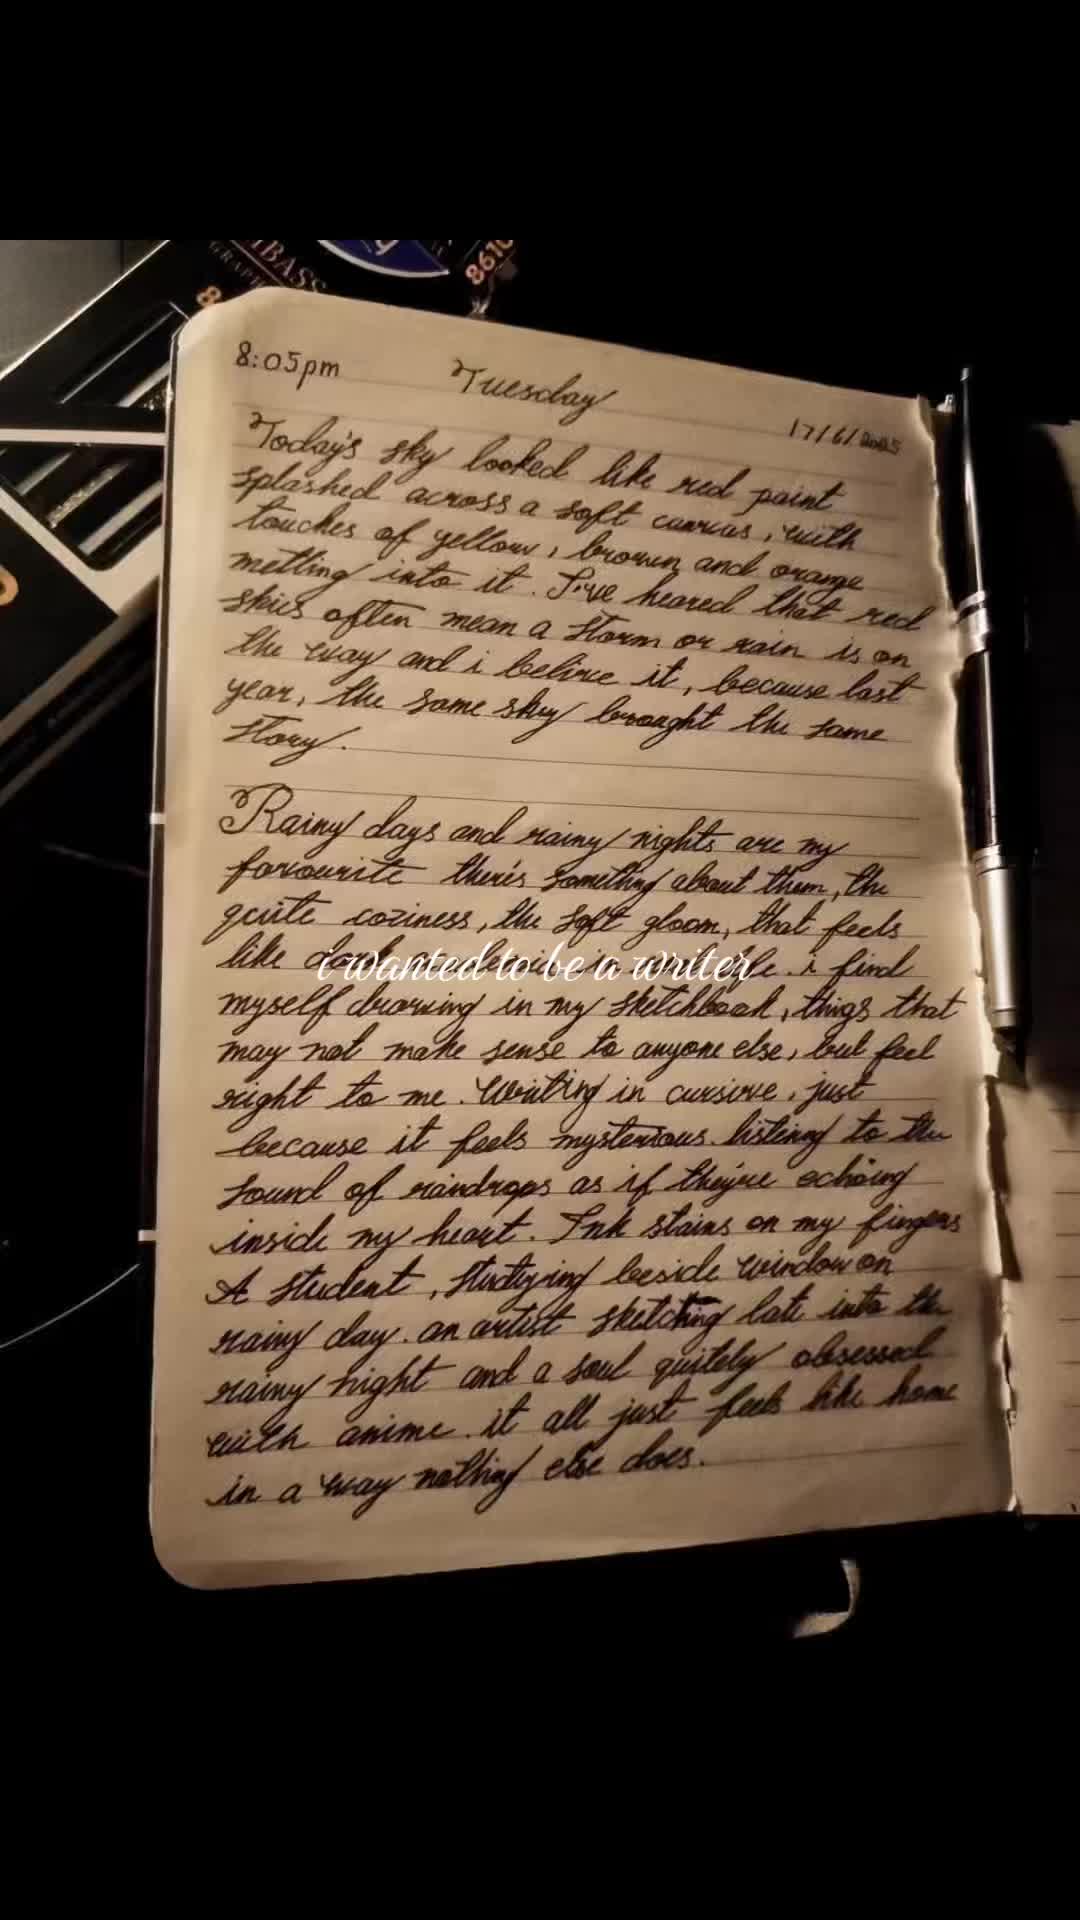 BASS
GRAPH
8610
8
8:05pm
Tuesday
17/6/2025
Today's sky looked like red paint
splashed across a soft canvas, with
touches of yellow, brown and orange
melting into it. I've heared that red
skies often mean a storm or rain is on
the way and i belive it, because last
year, the same sky brought the same
story.
Rainy days and rainy nights are my
favourite there's something about them, the
quite coziness, the soft gloom, that feels
like i find
i wanted to be a writer
myself drawing in my sketchbook, things that
may not make sense to anyone else, but feel
right to me. Writing in cursive, just
because it feels mysterious. listening to the
sound of raindrops as if they're echoing
inside my heart. Ink stains on my fingers
A student, studying beside window on
rainy day. an artist sketching late into the
rainy night and a soul quitely obsessed
with anime. it all just feels like home
in a way nothing else does.